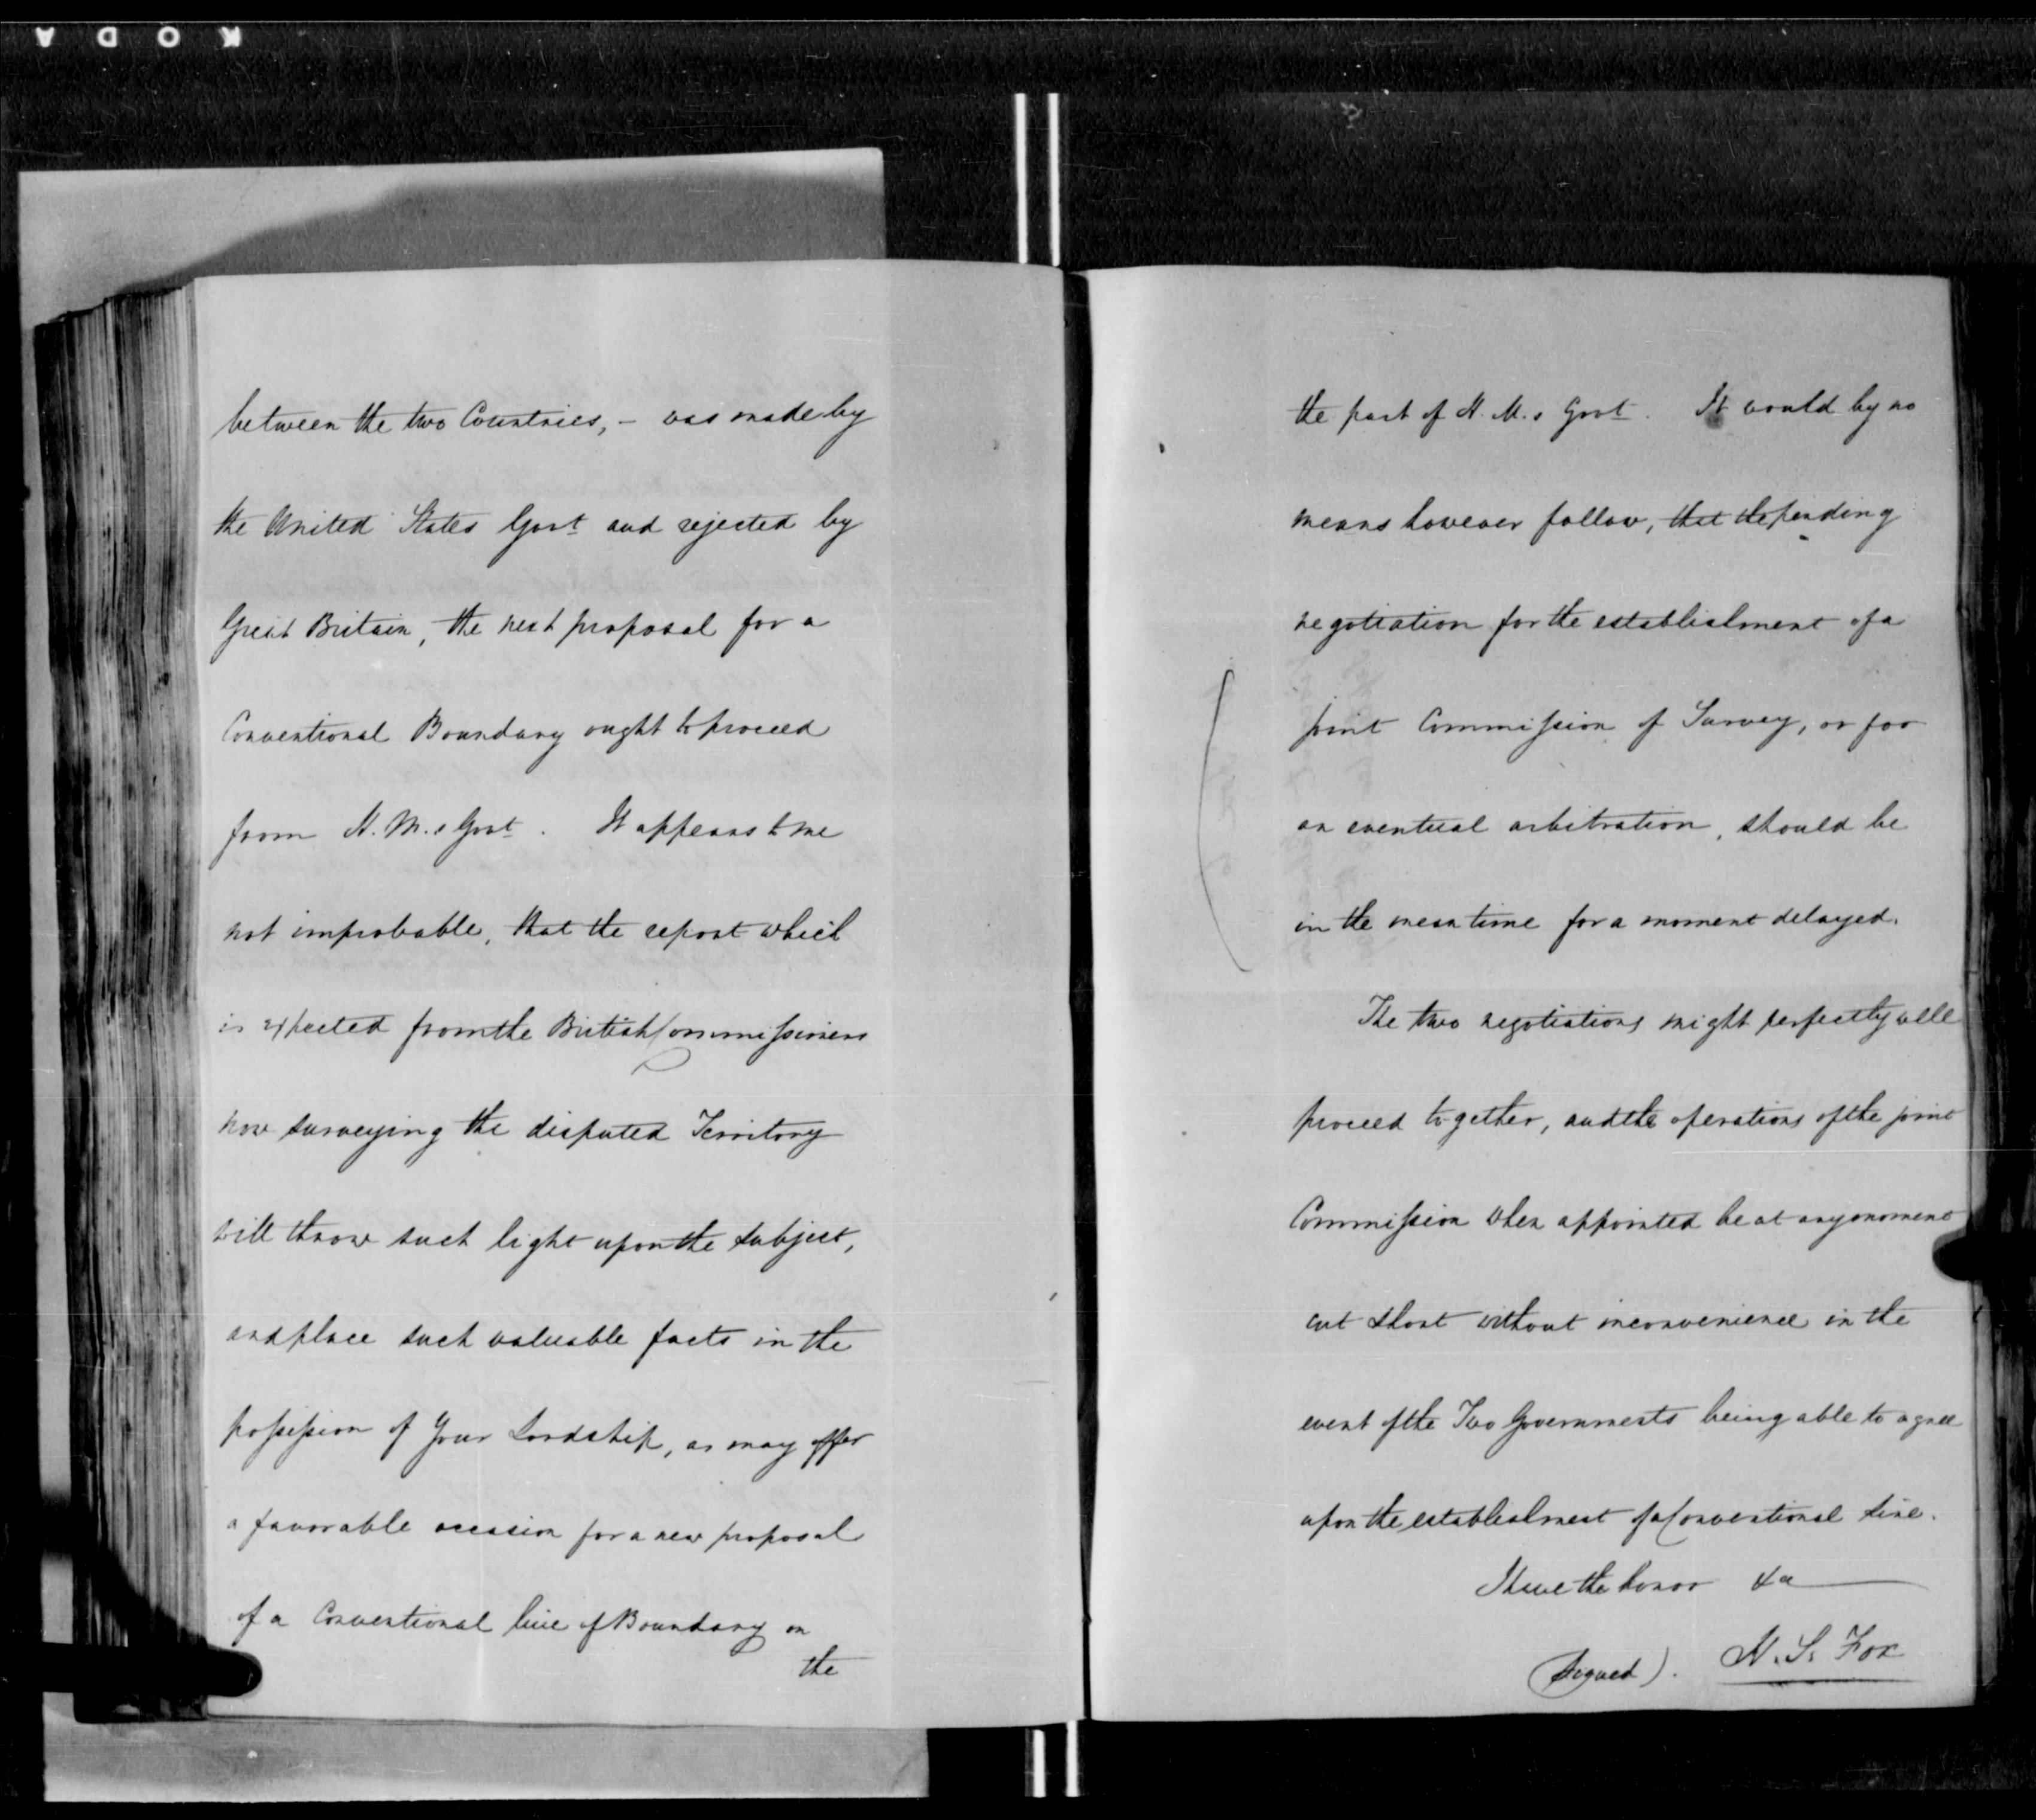 KODA
between the two Countries, – was made by
the United States Govt and rejected by
Great Britain, the next proposal for a
Conventional Boundary ought to proceed
from H. M.s Govt. It appears to me
not improbable, that the report which
is expected from the British Commissioners
now surveying the disputed Territory
will throw such light upon the subject,
and place such valuable facts in the
possession of Your Lordship, as may offer
a favorable occasion for a new proposal
of a Conventional line of Boundary on
the
the part of H. M.s Govt. It would by no
means however follow, that the pending
negotiation for the establishment of a
joint Commission of Survey, or for
an eventual arbitration, should be
in the mean time for a moment delayed.
The two negotiations might perfectly well
proceed together, and the operations of the joint
Commission when appointed be at any moment
cut short without inconvenience in the
event of the Two Governments being able to agree
upon the establishment of a Conventional Line.
I have the honor &a
(Signed). H. S. Fox